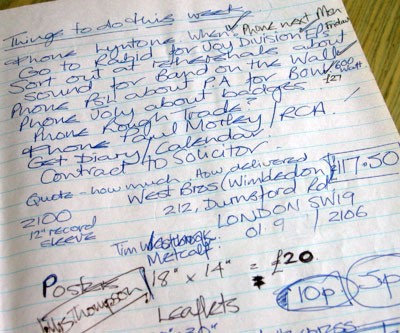 Things to do this week
Phone Lyntone When Phone next Mon
Go to Rapid for Joy Division EPs Friday
Sort out at rehearsals about
Sound for Band on the Wall
Phone PSL about PA for Bowdon 600 watt
Phone Joly about badges £27
Phone Rough Trade?
Phone Paul Morley / RCA.
Get Diary / Calendar.
Contract to Solicitor.
Quote - how much. How delivered
West Bros (Wimbledon) £117.50
212, Durnsford Rd
LONDON SW19
2100
12" record
sleeve
Tim
Metcalf. 01 · 9 / 2106
Posters 18" x 14" = £20
Mrs Thompson
Leaflets
10p 5p